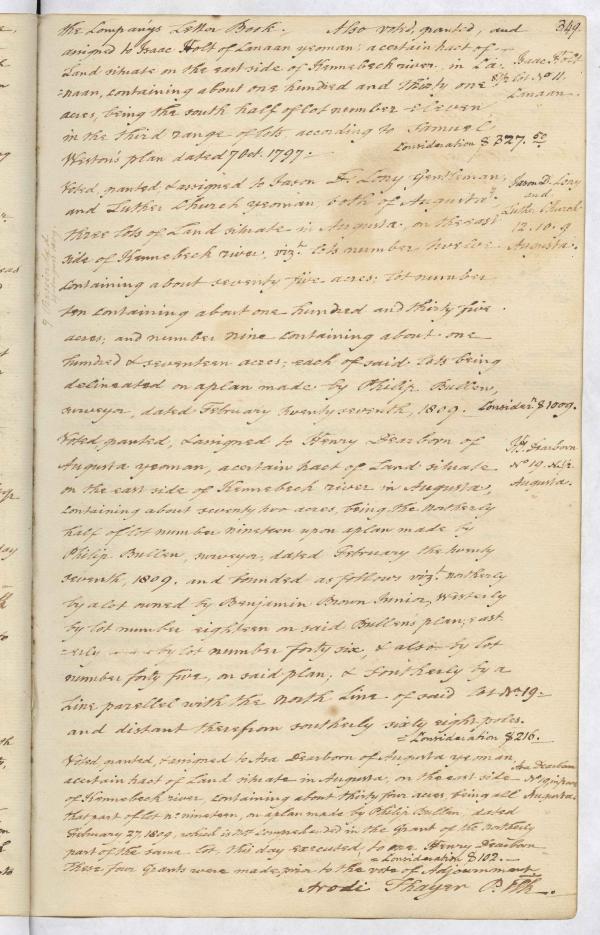 349.
the Company's Letter Book. Also voted, granted, and
assigned to Isaac Holt of Canaan yeoman; a certain tract of
Land situate on the east side of Kennebeck river, in Ca-
=naan, containing about one hundred and thirty one
acres, being the south half of lot number eleven
in the third range of lots, according to Samuel
Weston's plan dated 7 Oct. 1797.
Consideration $327.50
Isaac Holt
S½ lot No 11.
Canaan.
Voted, granted & assigned to Jason D. Lony Gentleman,
and Luther Church yeoman, both of Augusta,
three lots of Land situate in Augusta, on the east
side of Kennebeck river, vizt. lots number twelve
containing about seventy five acres; lot number
ten containing about one hundred and thirty five
acres; and number nine containing about one
hundred & seventeen acres; each of said lots being
delineated on a plan made by Philip Bullen,
surveyor, dated February twenty seventh, 1809. Considern. $1009.
Jason D. Lony
and
Luther Church
12. 10. 9
Augusta.
Voted, granted, & assigned to Henry Dearborn of
Augusta yeoman, a certain tract of Land situate
on the east side of Kennebeck river in Augusta,
containing about seventy two acres, being the northerly
half of lot number nineteen upon a plan made by
Philip Bullen, surveyor, dated February the twenty
seventh, 1809. and bounded as follows vizt. northerly
by a lot owned by Benjamin Brown Junior, Westerly
by lot number eighteen on said Bullens plan; east
=erly by lot number forty six, & also by lot
number forty five, on said plan; & southerly by a
Line parellel with the North Line of said lot No 19
and distant therefrom southerly sixty eight poles.
= Consideration $216.
Hy. Dearborn
No 19. N.½
Augusta.
Voted, granted, & assigned to Asa Dearborn of Augusta yeoman,
a certain tract of Land situate in Augusta, on the east side
of Kennebeck river, containing about thirty four acres, being all
that part of lot No nineteen, on a plan made by Philip Bullen, dated
February 27. 1809, which is not comprehended in the Grant of the Northerly
part of the same lot, this day executed to one Henry Dearborn
= Consideration $102.
Asa Dearborn
No 19, in part
Augusta.
These four Grants were made prior to the vote of Adjournment
Arodi Thayer P. Clk.